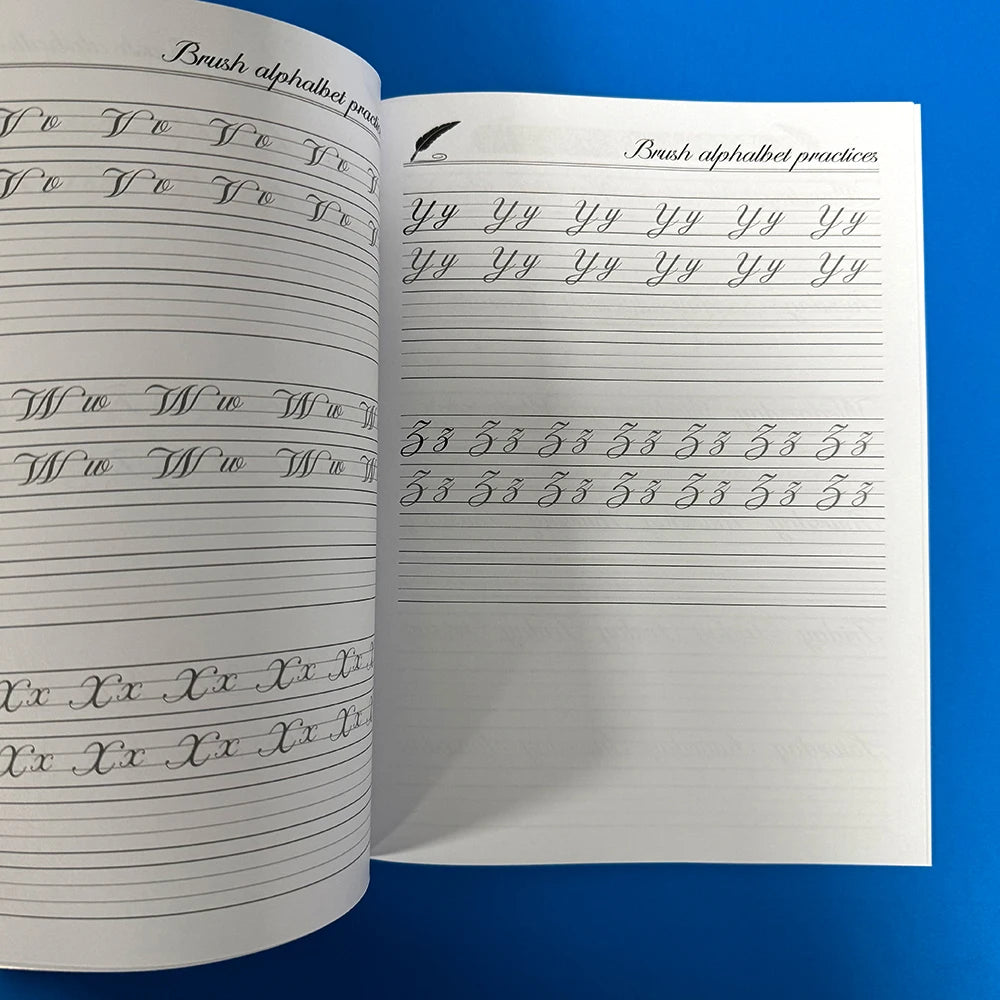 Brush alphalbet practices
V v V v V v V v
V v V v V v V v
W w W w W w W
W w W w W w W
Xx Xx Xx Xx Xx
Xx Xx Xx Xx Xx
Brush alphalbet practices
Yy Yy Yy Yy Yy Yy
Yy Yy Yy Yy Yy Yy
Zz Zz Zz Zz Zz Zz Zz
Zz Zz Zz Zz Zz Zz Zz